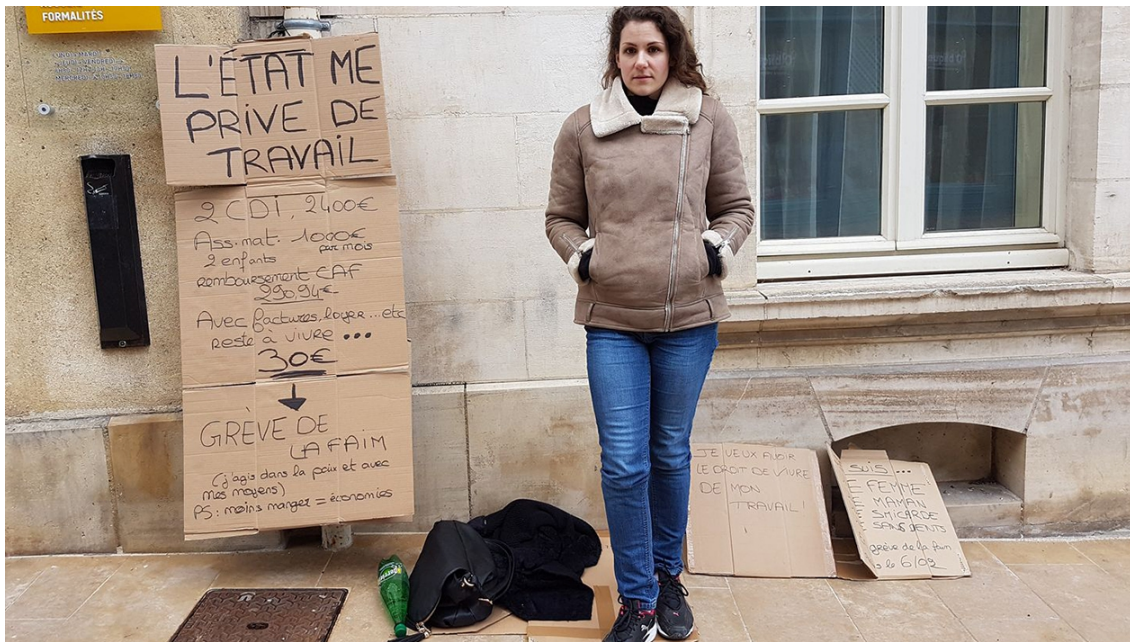 FORMALITÉS
L'ÉTAT ME
PRIVE DE
TRAVAIL
2 CDI, 2400€
Ass. mat. 1000€
par mois
2 enfants
remboursement CAF
290,94€
Avec factures, loyer...etc
reste à vivre ...
30€
GRÈVE DE
LA FAIM
(j'agis dans la paix et avec
mes moyens)
PS: moins manger = économies
JE VEUX AVOIR
LE DROIT DE VIVRE
DE MON
TRAVAIL!
SUIS...
FEMME
MAMAN
SMICARDE
SANS DENTS
grève de la faim
le 6/02